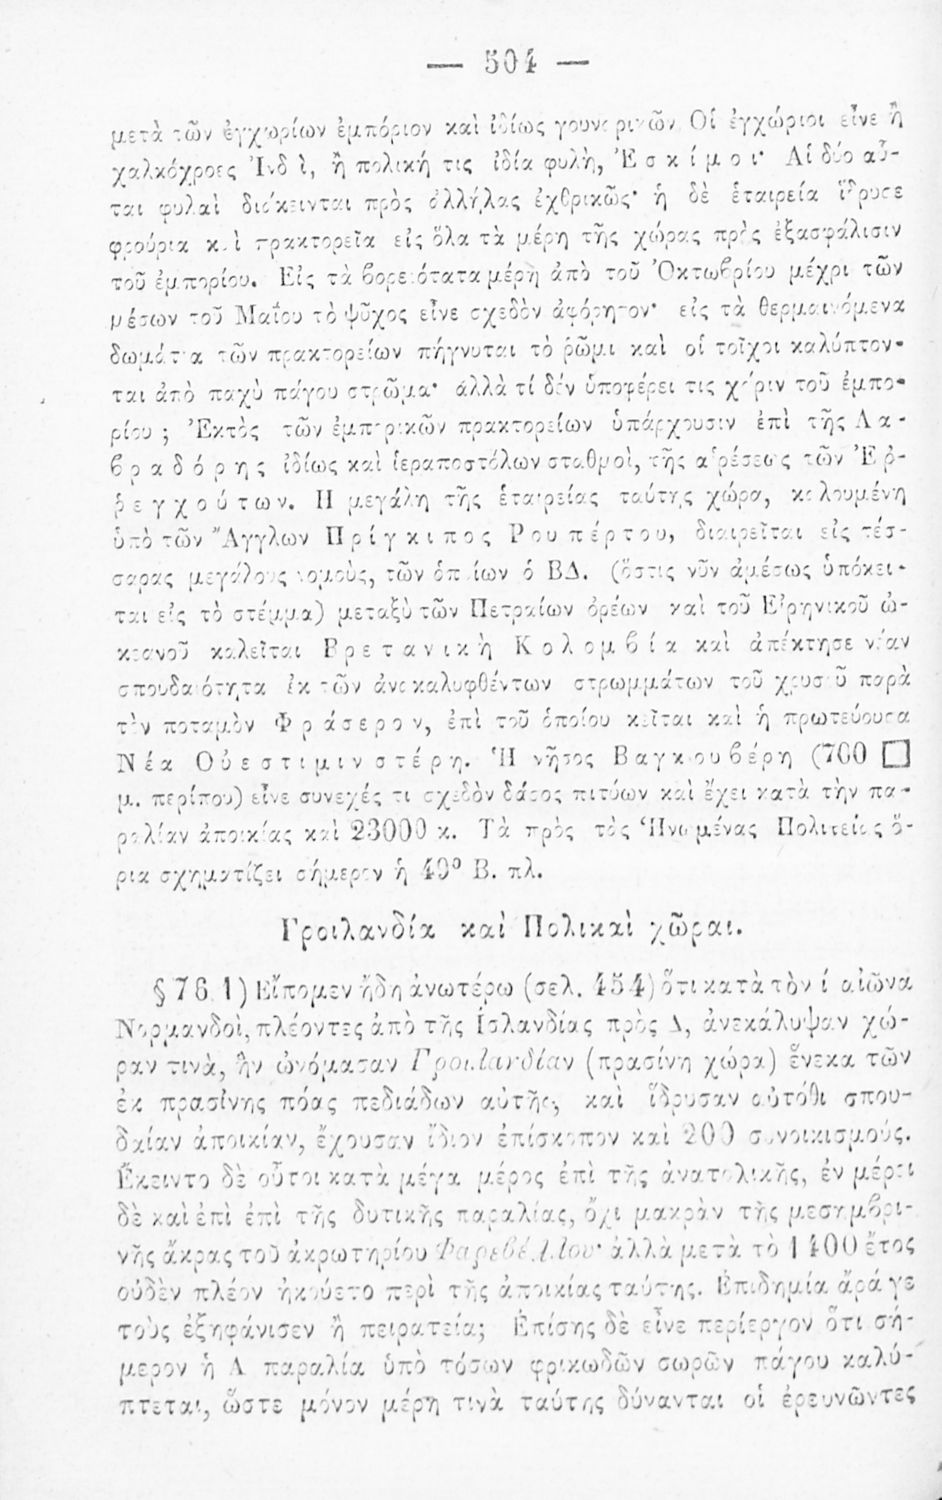 — 504 —
μετὰ τῶν ἐγχωρίων ἐμπόριον καὶ ἰδίως γουναρικῶν. Οἱ ἐγχώριοι εἶνε ἢ
χαλκόχροες Ἰνδοὶ, ἢ πολική τις ἰδία φυλὴ, Ἐσκίμοι· Αἱ δύο αὗ-
ται φυλαὶ διάκεινται πρὸς ἀλλήλας ἐχθρικῶς· ἡ δὲ ἑταιρεία ἵδρυσε
φρούρια καὶ πρακτορεῖα εἰς ὅλα τὰ μέρη τῆς χώρας πρὸς ἐξασφάλισιν
τοῦ ἐμπορίου. Εἰς τὰ βορειότατα μέρη ἀπὸ τοῦ Ὀκτωβρίου μέχρι τῶν
μέσων τοῦ Μαΐου τὸ ψῦχος εἶνε σχεδὸν ἀφόρητον· εἰς τὰ θερμαινόμενα
δωμάτια τῶν πρακτορείων πήγνυται τὸ ῥῶμι καὶ οἱ τοῖχοι καλύπτον-
ται ἀπὸ παχὺ πάγου στρῶμα· ἀλλὰ τί δὲν ὑποφέρει τις χάριν τοῦ ἐμπο-
ρίου ; Ἐκτὸς τῶν ἐμπορικῶν πρακτορείων ὑπάρχουσιν ἐπὶ τῆς Λα-
βραδόρης ἰδίως καὶ ἱεραποστόλων σταθμοὶ, τῆς αἱρέσεως τῶν Ἑρ-
ῥεγχούτων. Η μεγάλη τῆς ἑταιρείας ταύτης χώρα, καλουμένη
ὑπὸ τῶν Ἄγγλων Πρίγκιπος Ρουπέρτου, διαιρεῖται εἰς τέσ-
σαρας μεγάλους νομοὺς, τῶν ὁποίων ὁ ΒΔ. (ὅστις νῦν ἀμέσως ὑπόκει-
ται εἰς τὸ στέμμα) μεταξὺ τῶν Πετραίων ὀρέων καὶ τοῦ Εἰρηνικοῦ ὠ-
κεανοῦ καλεῖται Βρετανικὴ Κολομβία καὶ ἀπέκτησε νέαν
σπουδαιότητα ἐκ τῶν ἀνακαλυφθέντων στρωμμάτων τοῦ χρυσοῦ παρὰ
τὸν ποταμὸν Φράσερον, ἐπὶ τοῦ ὁποίου κεῖται καὶ ἡ πρωτεύουσα
Νέα Οὐεστιμινστέρη. Ἡ νῆσος Βαγκουβέρη (700 □
μ. περίπου) εἶνε συνεχές τι σχεδὸν δάσος πιτύων καὶ ἔχει κατὰ τὴν πα-
ραλίαν ἀποικίας καὶ 23000 κ. Τὰ πρὸς τὰς Ἡνωμένας Πολιτείας ὅ-
ρια σχηματίζει σήμερον ἡ 49° Β. πλ.
Γροιλανδία καὶ Πολικαὶ χῶραι.
§ 78 1) Εἴπομεν ἤδη ἀνωτέρω (σελ. 454) ὅτι κατὰ τὸν ί αἰῶνα
Νορμανδοὶ, πλέοντες ἀπὸ τῆς Ἰσλανδίας πρὸς Δ, ἀνεκάλυψαν χώ-
ραν τινὰ, ἣν ὠνόμασαν Γροιλανδίαν (πρασίνη χώρα) ἕνεκα τῶν
ἐκ πρασίνης πόας πεδιάδων αὐτῆς, καὶ ἵδρυσαν αὐτόθι σπου-
δαίαν ἀποικίαν, ἔχουσαν ἴδιον ἐπίσκοπον καὶ 200 συνοικισμούς.
Ἔκειντο δὲ οὗτοι κατὰ μέγα μέρος ἐπὶ τῆς ἀνατολικῆς, ἐν μέρει
δὲ καὶ ἐπὶ ἐπὶ τῆς δυτικῆς παραλίας, ὄχι μακρὰν τῆς μεσημβρι-
νῆς ἄκρας τοῦ ἀκρωτηρίου Φαρεβέλλου· ἀλλὰ μετὰ τὸ 1400 ἔτος
οὐδὲν πλέον ἠκούετο περὶ τῆς ἀποικίας ταύτης. Ἐπιδημία ἄρά γε
τοὺς ἐξηφάνισεν ἢ πειρατεία; Ἐπίσης δὲ εἶνε περίεργον ὅτι σή-
μερον ἡ Α παραλία ὑπὸ τόσων φρικωδῶν σωρῶν πάγου καλύ-
πτεται, ὥστε μόνον μέρη τινὰ ταύτης δύνανται οἱ ἐρευνῶντες